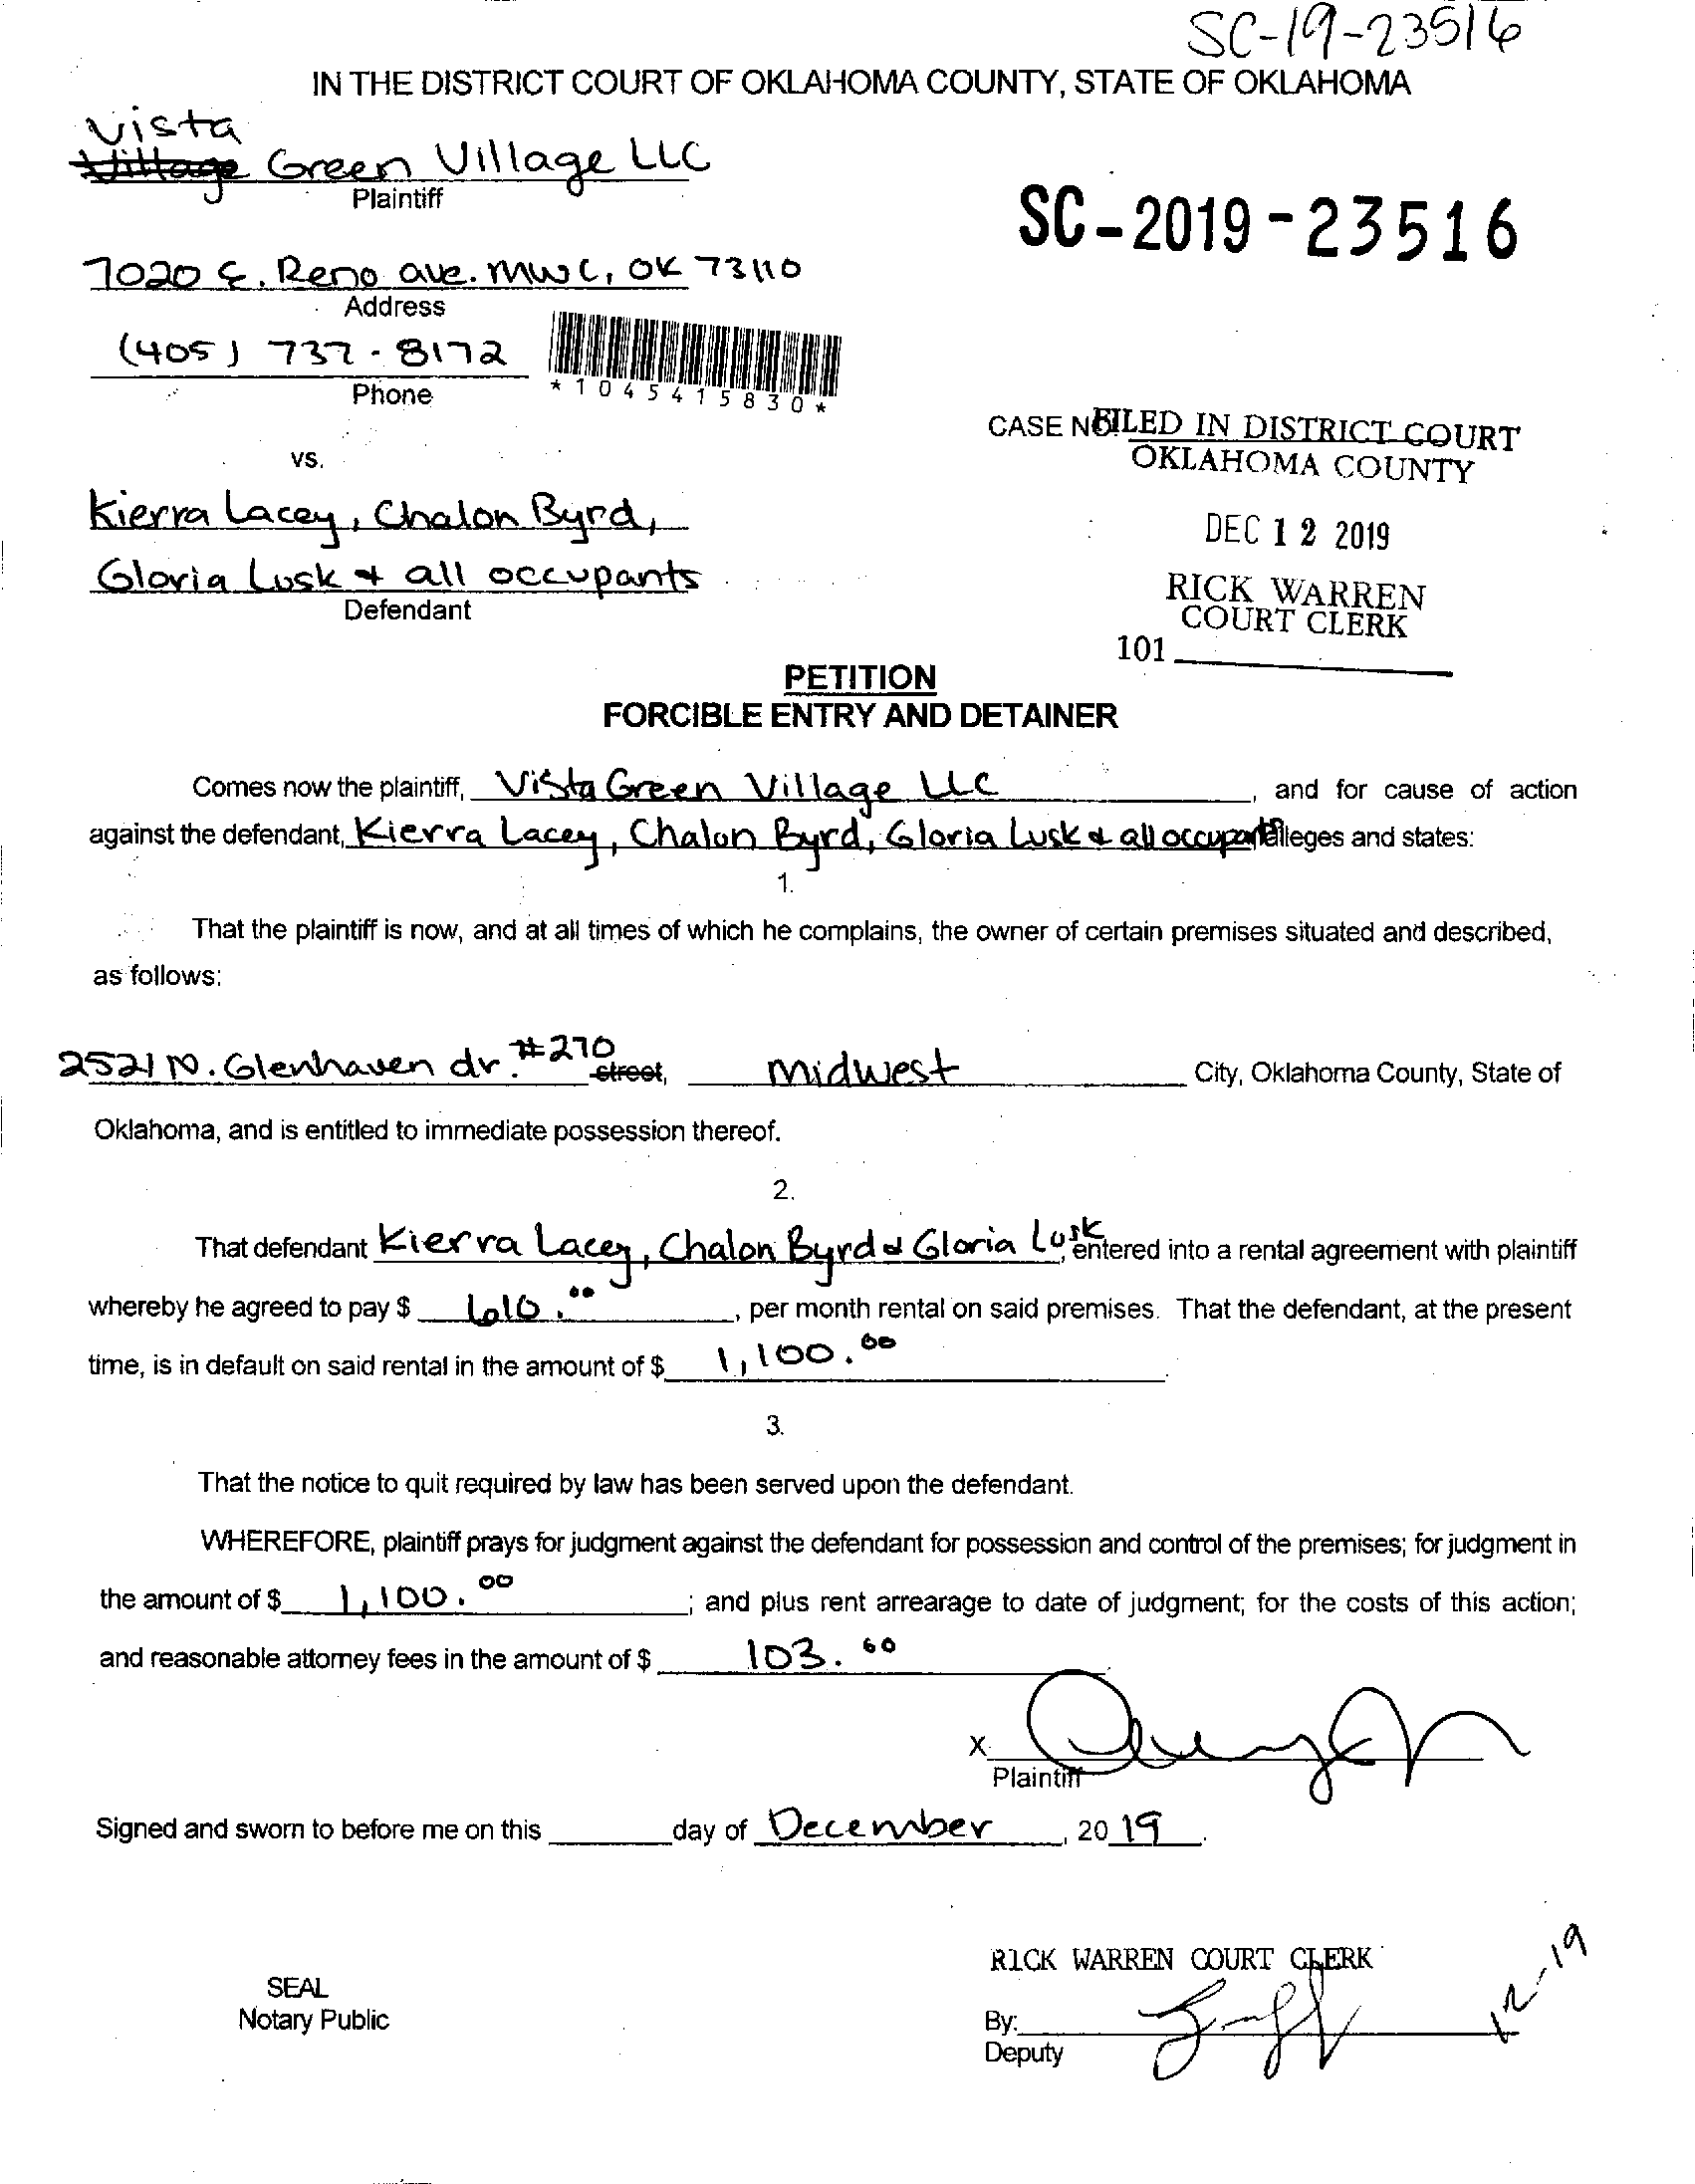 SC-19-23516
IN THE DISTRICT COURT OF OKLAHOMA COUNTY, STATE OF OKLAHOMA
Vista
Village Green Village LLC
Plaintiff
SC-2019-23516
7020 E. Reno ave. MWC, OK 73110
Address
(405) 737-8172
Phone
*1045415830*
CASE NO.
FILED IN DISTRICT COURT
OKLAHOMA COUNTY
vs.
Kierra Lacey, Chalon Byrd,
DEC 12 2019
Gloria Lusk & all occupants
Defendant
RICK WARREN
COURT CLERK
101
PETITION
FORCIBLE ENTRY AND DETAINER
Comes now the plaintiff, Vista Green Village LLC, and for cause of action
against the defendant, Kierra Lacey, Chalon Byrd, Gloria Lusk & all occupants alleges and states:
1.
That the plaintiff is now, and at all times of which he complains, the owner of certain premises situated and described,
as follows:
2521 N. Glenhaven dr. #270 street, Midwest City, Oklahoma County, State of
Oklahoma, and is entitled to immediate possession thereof.
2.
That defendant Kierra Lacey, Chalon Byrd & Gloria Lusk, entered into a rental agreement with plaintiff
whereby he agreed to pay $ 610.00, per month rental on said premises. That the defendant, at the present
time, is in default on said rental in the amount of $ 1,100.00
3.
That the notice to quit required by law has been served upon the defendant.
WHEREFORE, plaintiff prays for judgment against the defendant for possession and control of the premises; for judgment in
the amount of $ 1,100.00; and plus rent arrearage to date of judgment; for the costs of this action;
and reasonable attorney fees in the amount of $ 103.60
X
Plaintiff
Signed and sworn to before me on this ______ day of December, 2019.
RICK WARREN COURT CLERK
SEAL
Notary Public
By:
12-19
Deputy